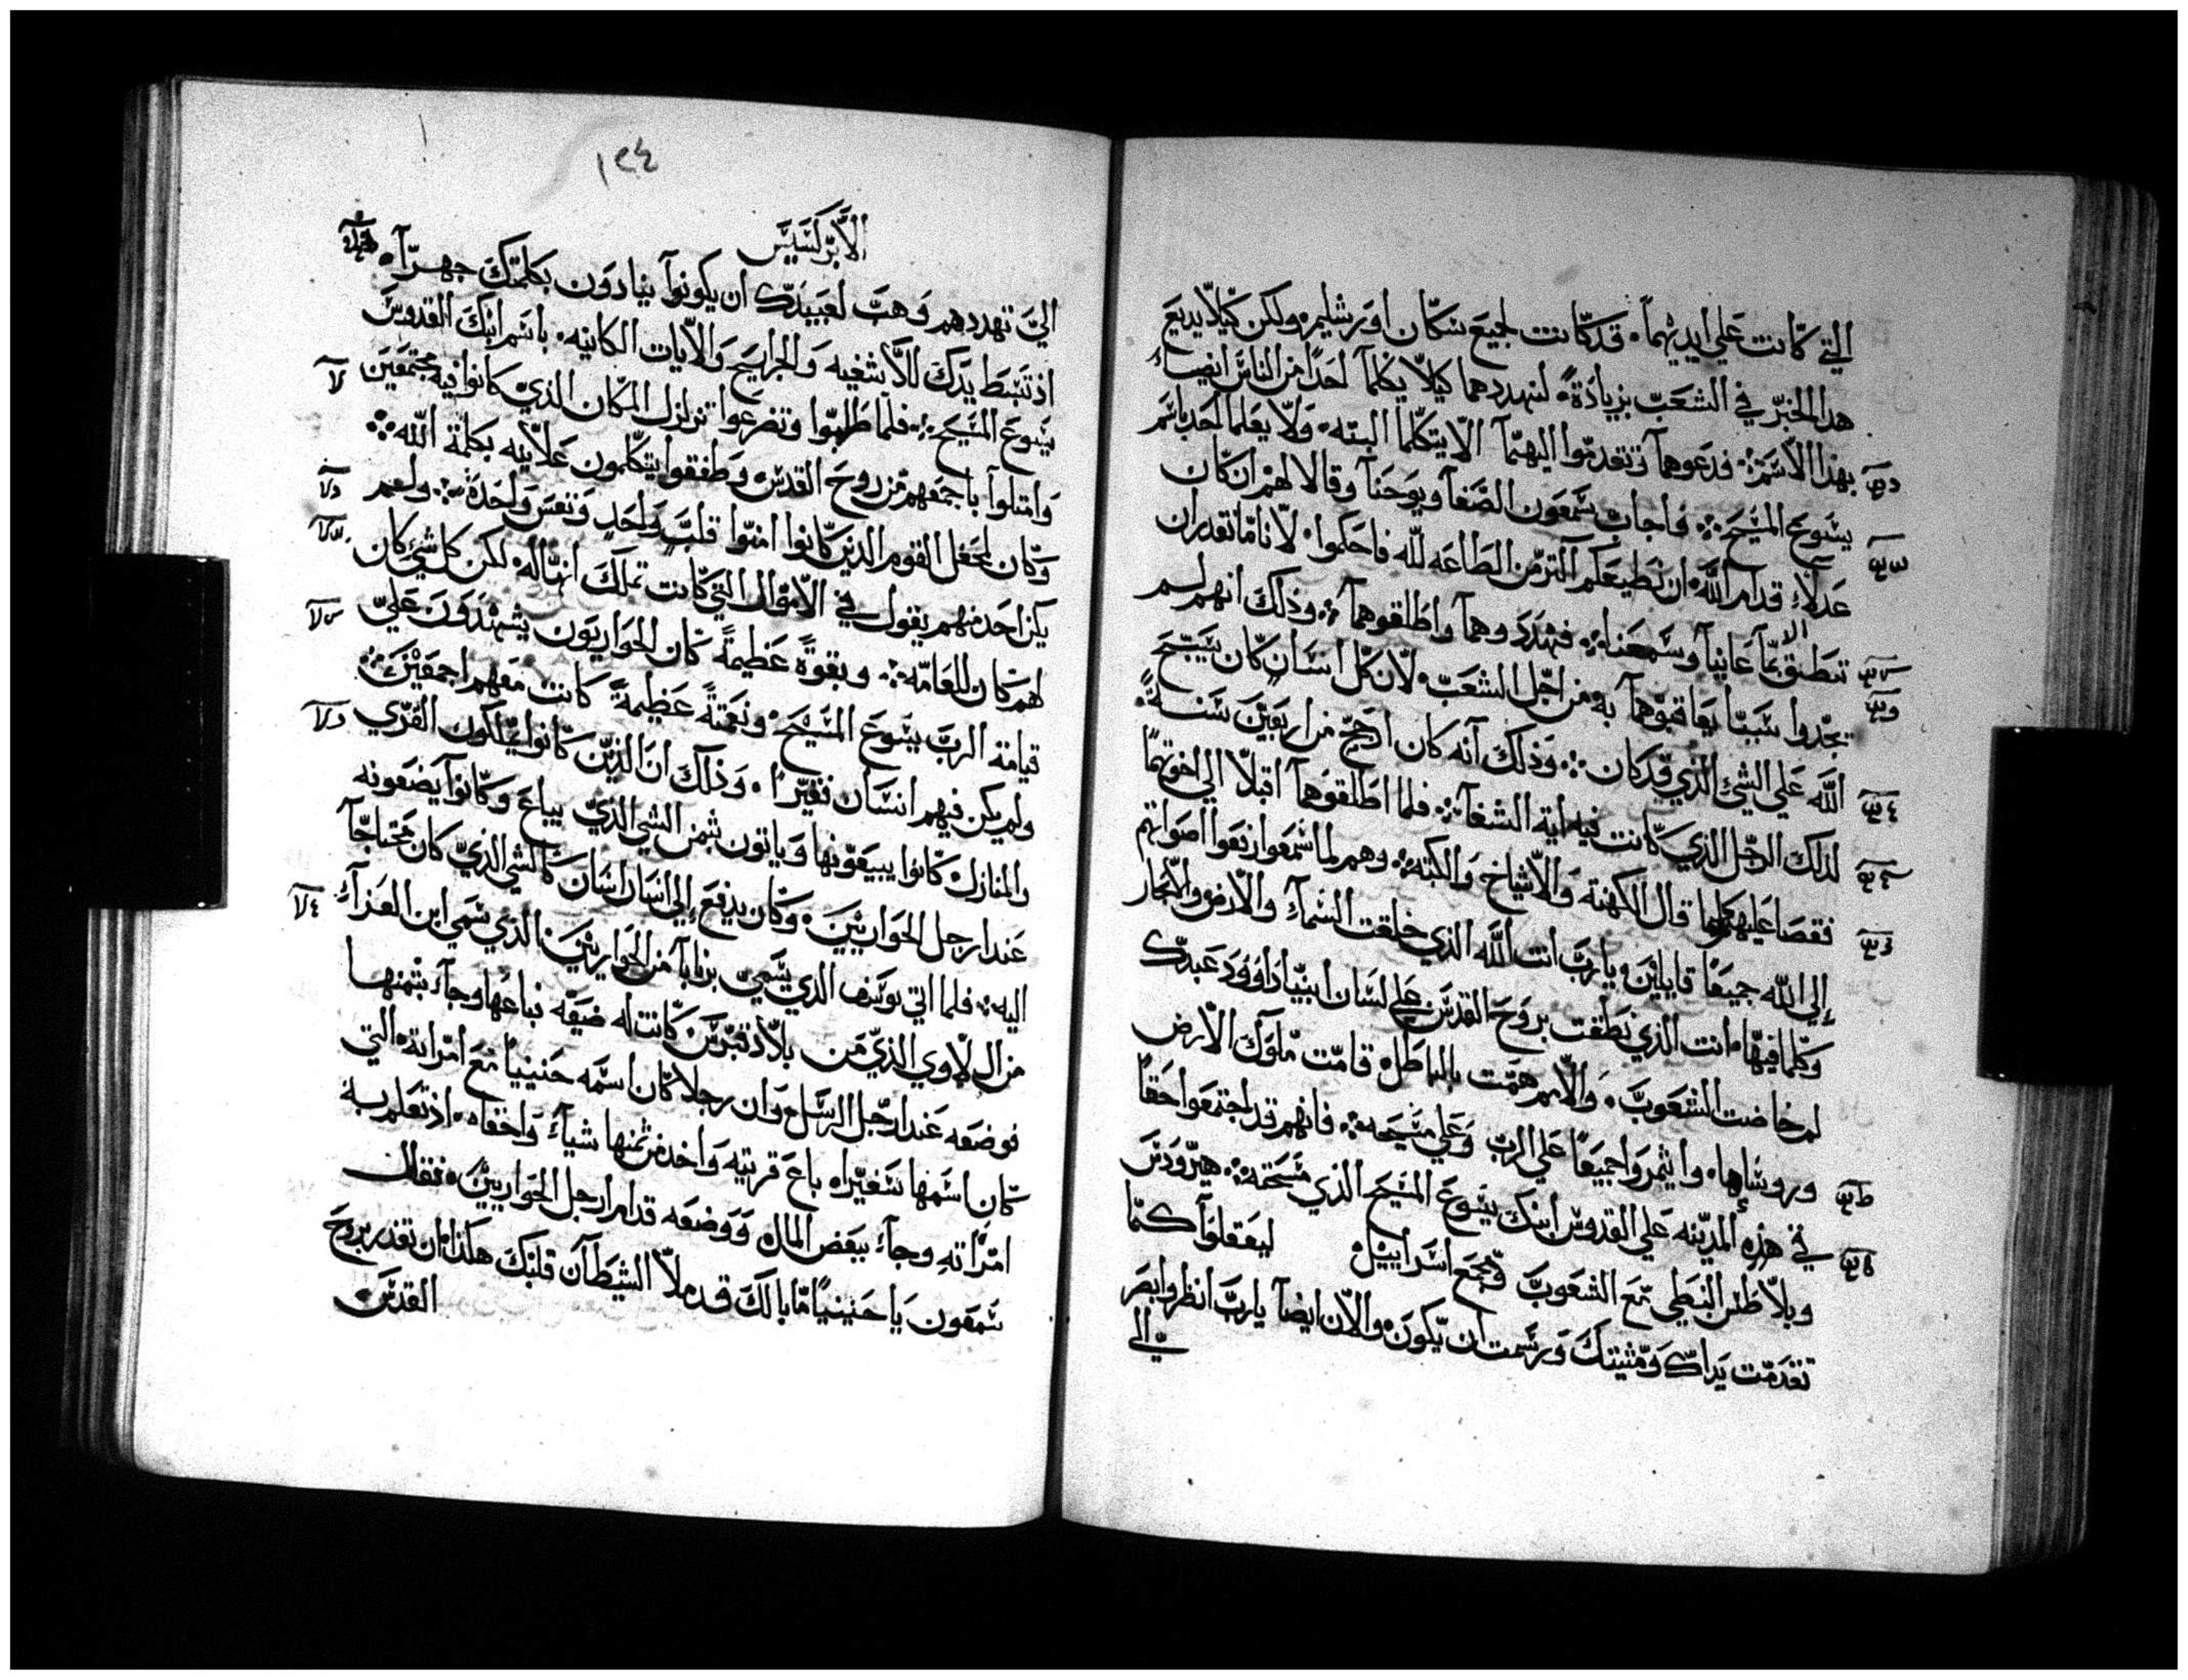 التي كانت علي ايديهما. قد كانت لجميع سكان اورشليم. ولكن كيلا يديع
هدا الخبر في الشعب بزيادة. لنهددهما كيلا يكلما احدا من الناس ايضا
بهدا الاسم. فدعوهما وتقدموا اليهما الا يتكلما البته. ولا يعلما احد باسم
يشوع المسيح. فاجاب شمعون الصفا ويوحنا وقالا لهم ان كان
عدلا قدام الله ان نطيعكم اكتر من الطاعه لله فاحكموا. لاناما نقدر ان
ننطق الا بما عاينا وسمعنا. فهددوهما واطلقوهما. وذلك انهم لم
يجدوا سببا يعاقبوهما به من اجل الشعب. لان كل انسان كان يسبح
الله علي الشي الذي قد كان. وذلك انه كان ارجح من اربعين سنة.
لذلك الرجل الذي كانت فيه اية الشفا. فلما اطلقوهما اقبلا الي اخوتهما
فقصا عليهم كلما قال الكهنة والاشياخ والكتبة. وهم لما سمعوا رفعوا اصواتهم
إلي الله جميعا قايلين. يارب انت الله الذي خلقت السماء والارض والابحار
وكلما فيها. انت الذي نطقت بروح القدس علي لسان ابينا داوود عبدك
لم خاضت الشعوب. والامم همت بالباطل. قامت ملوك الارض
وروساها. وايتمروا جميعا علي الرب وعلي مسيحه. فانهم قد اجتمعوا حقا
في هذه المدينه علي القدوس ابنك يشوع المسيح الذي مسحته. هيرودس
وبلاطس النبطي مع الشعوب ومجمع اسراييل ليفعلوا كلما
تقدمت يداك ومشيتك ورسمت ان يكون. والان ايضا يارب انظر وابصر
الي
١٢٤
الابركسيس
الي تهددهم وهب لعبيدك ان يكونوا ينادون بكلمتك جهرا.
اذ تبسط يدك للاشفيه والجرايح والايات الكاينه. باسم ابنك القدوس
يشوع المسيح. فلما طلبوا وتضرعوا تزلزل المكان الذي كانوا فيه مجتمعين
وامتلوا باجمعهم من روح القدس وطفقوا يتكلمون علانيه بكلمة الله.
وكان لمحفل القوم الذين كانوا امنوا قلب واحد ونفس واحدة. ولم
يكن احد منهم يقول في الاموال التي كانت تملك انها له. لكن كل شي كان
لهم كان للعامه. وبقوة عظيمة كان الحواريون يشهدون علي
قيامة الرب يشوع المسيح. ونعمة عظيمة كانت معهم اجمعين.
ولم يكن فيهم انسان فقيرا. وذلك ان الذين كانوا يملكون القري
والمنازل كانوا يبيعونها وياتون بثمن الشي الذي يباع وكانوا يضعونه
عند ارجل الحواريين. وكان يدفع إلي انسان انسان كالشي الذي كان محتاجا
اليه. فلما اتي يوسف الذي يسمي برنابا من الحواريين. الذي سمي ابن العزاء
من ال لاوي الذي من بلاد قبرس كانت له ضيعه فباعها وجاء بثمنها
فوضعه عند ارجل الرسل وان رجلا كان اسمه حنينيا مع امراته التي
كان اسمها سفيرا. باع قريته واخد من ثمنها شياء واخفاه. اذ تعلم به
امراته وجاء ببعض المال ووضعه قدام ارجل الحواريين. فقال
شمعون يا حنينيا ما بالك قد ملا الشيطان قلبك هكذا ان تغدر بروح
القدس